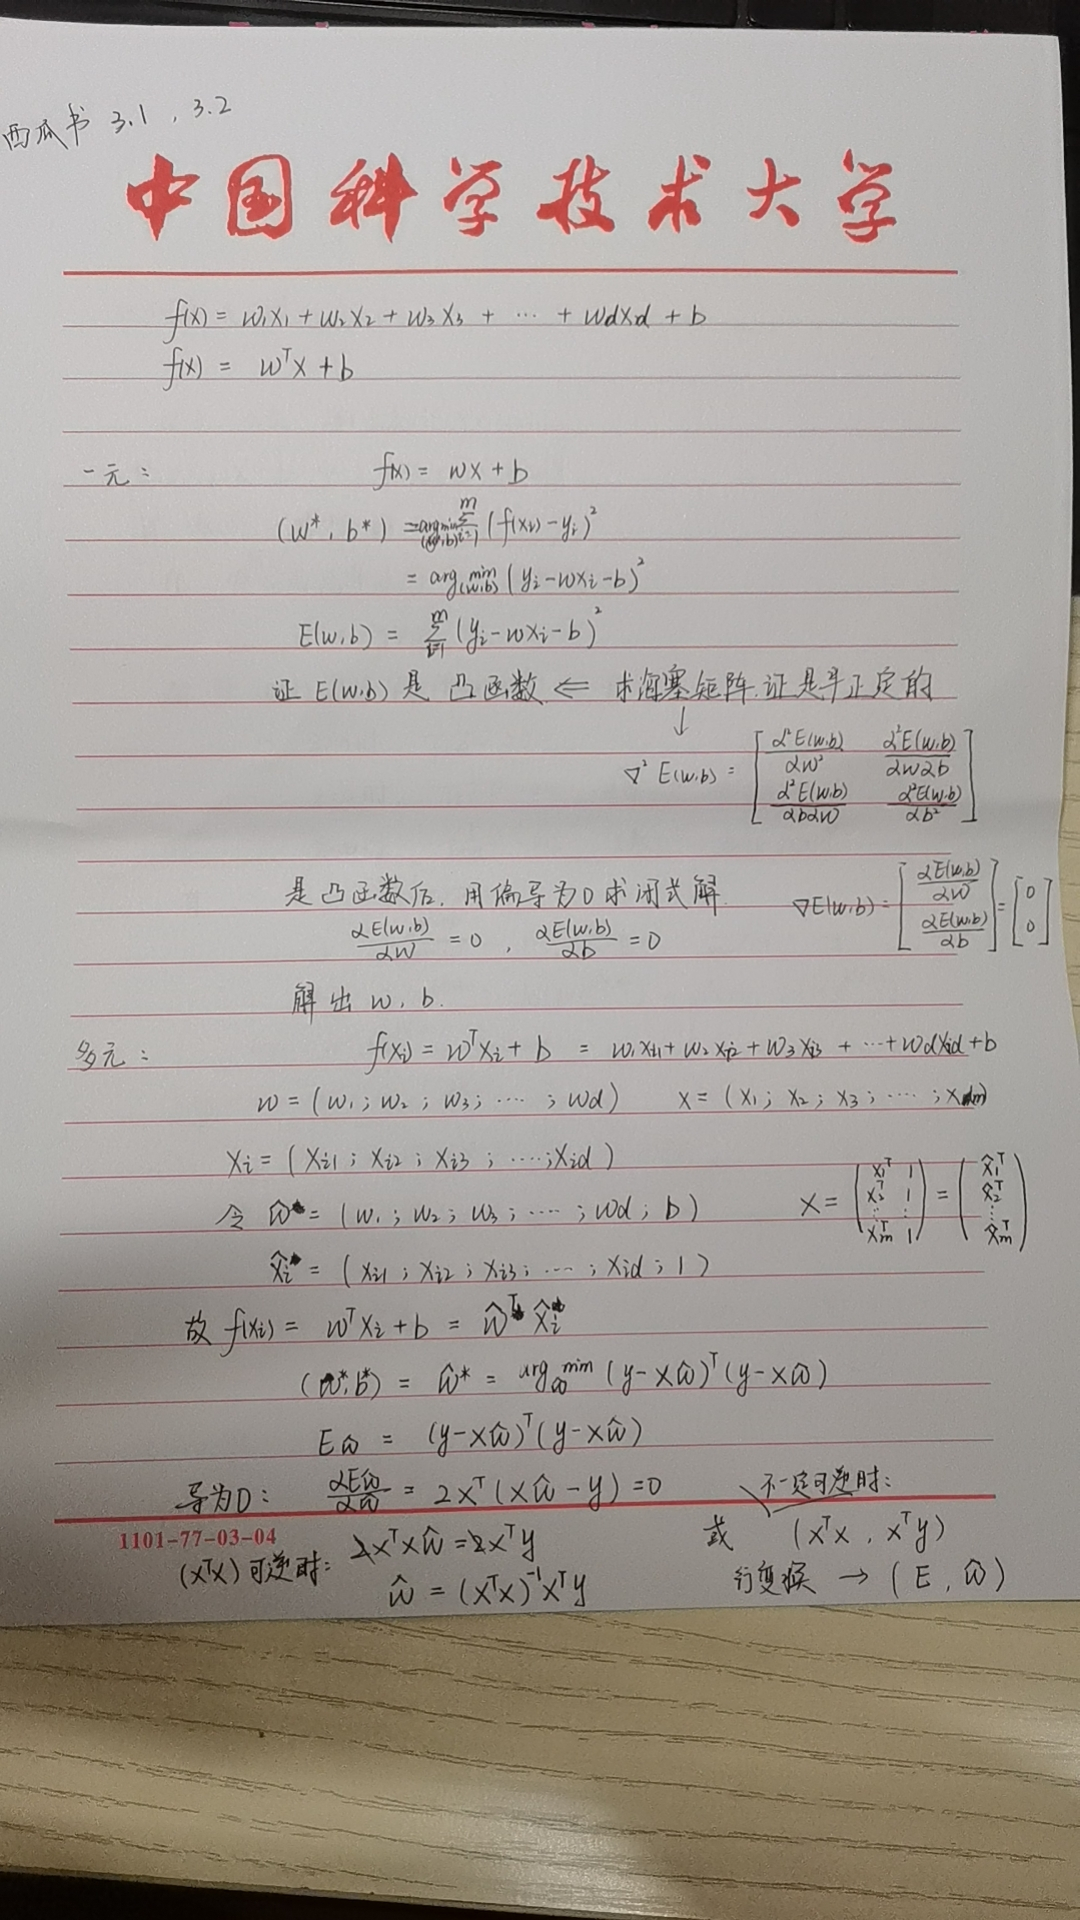 西瓜书 3.1,3.2
中国科学技术大学
f(x) = w₁x₁ + w₂x₂ + w₃x₃ + ··· + wdxd + b
f(x) = wᵀx + b
一元: f(x) = wx + b
(w*, b*) = arg min(w,b) Σᵢ₌₁ᵐ (f(xᵢ) - yᵢ)²
= arg min(w,b) (yᵢ - wxᵢ - b)²
E(w,b) = Σᵢ₌₁ᵐ (yᵢ - wxᵢ - b)²
证 E(w,b) 是 凸函数 ⇐ 求海塞矩阵,证是半正定的
↓
∇²E(w,b) = [∂²E(w,b)/∂w² ∂²E(w,b)/∂w∂b
∂²E(w,b)/∂b∂w ∂²E(w,b)/∂b²]
是凸函数后,用偏导为0求闭式解. ∇E(w,b) = [∂E(w,b)/∂w ; ∂E(w,b)/∂b] = [0 ; 0]
∂E(w,b)/∂w = 0 , ∂E(w,b)/∂b = 0
解出 w, b.
多元: f(xᵢ) = wᵀxᵢ + b = w₁xᵢ₁ + w₂xᵢ₂ + w₃xᵢ₃ + ··· + wdxid + b
w = (w₁; w₂; w₃; ····; wd) x = (x₁; x₂; x₃; ····; xm)
xᵢ = (xᵢ₁; xᵢ₂; xᵢ₃; ····; xid)
令 ŵ = (w₁; w₂; w₃; ····; wd; b) X = (x₁ᵀ 1 ; x₂ᵀ 1 ; ⋮ ⋮ ; xmᵀ 1) = (x̂₁ᵀ ; x̂₂ᵀ ; ⋮ ; x̂mᵀ)
x̂ᵢ = (xᵢ₁; xᵢ₂; xᵢ₃; ····; xid; 1)
故 f(xᵢ) = wᵀxᵢ + b = ŵᵀx̂ᵢ
(w*, b*) = ŵ* = arg min ŵ (y - Xŵ)ᵀ(y - Xŵ)
Eŵ = (y - Xŵ)ᵀ(y - Xŵ)
导为0: ∂Eŵ/∂ŵ = 2Xᵀ(Xŵ - y) = 0 不一定可逆时:
1101-77-03-04
2XᵀXŵ = 2Xᵀy 或 (XᵀX, Xᵀy)
(XᵀX)可逆时: ŵ = (XᵀX)⁻¹Xᵀy 行变换 → (E, ŵ)